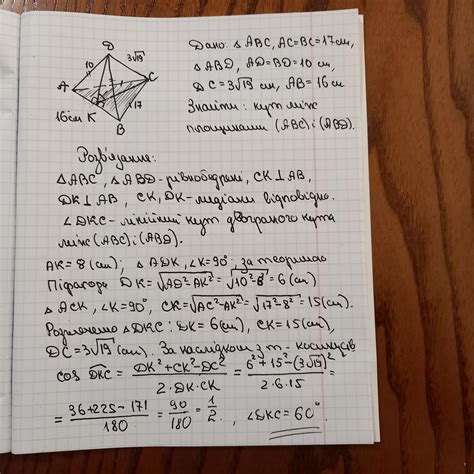 D
10
3√19
A
C
17
16см K
B
Дано: △ ABC, AC=BC=17см,
△ ABD, AD=BD=10 см,
DC=3√19 см, AB=16см
Знайти: кут між
площинами (ABC) і (ABD).
Розв'язання:
△ABC, △ABD-рівнобедрені, CK⊥AB,
DK⊥AB, CK, DK-медіани відповідно.
∠DKC-лінійний кут двогранного кута
між (ABC) і (ABD).
AK=8 (см); △ ADK, ∠K=90°, за теоремою
Піфагора DK=√AD²-AK² = √10²-8² = 6 (см)
△ ACK, ∠K=90°, CK=√AC²-AK² = √17²-8² = 15(см).
Розглянемо △DKC: DK=6(см), CK=15(см),
DC=3√19 (см). За наслідком з т. косинусів
cos DKC = DK²+CK²-DC² / 2·DK·CK = 6²+15²-(3√19)² / 2·6·15 =
= 36+225-171 / 180 = 90 / 180 = 1 / 2. ∠DKC=60°.